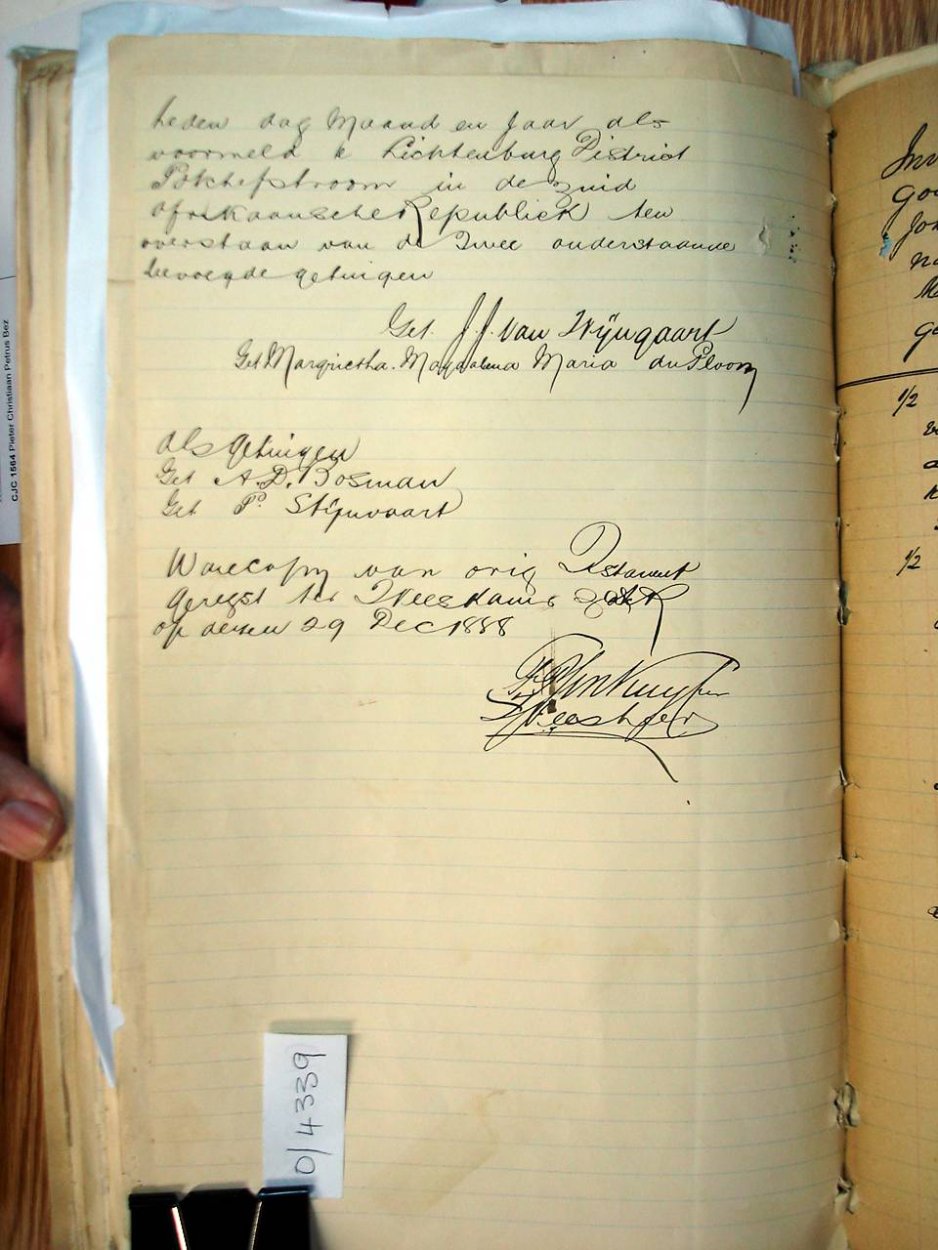 heden dag Maand en Jaar als
voormeld te Lichtenburg District
Potchefstroom in de Zuid
Afrikaansche Republiek ten
overstaan van de Twee onderstaande
bevoegde getuigen
Get. J. J. van Wÿngaart
Get Margrietha. Magdalena Maria du Ploooy
Als getuigen
Get A. D. Bosman
Get. P. Stÿnvaart
Ware copy van orig Testament
Geregst ter Weeskamer
op dezen 29 Dec 1888
Weesheer
0/4339
CJC 1564 Pieter Christiaan Petrus Bez
1/2
1/2